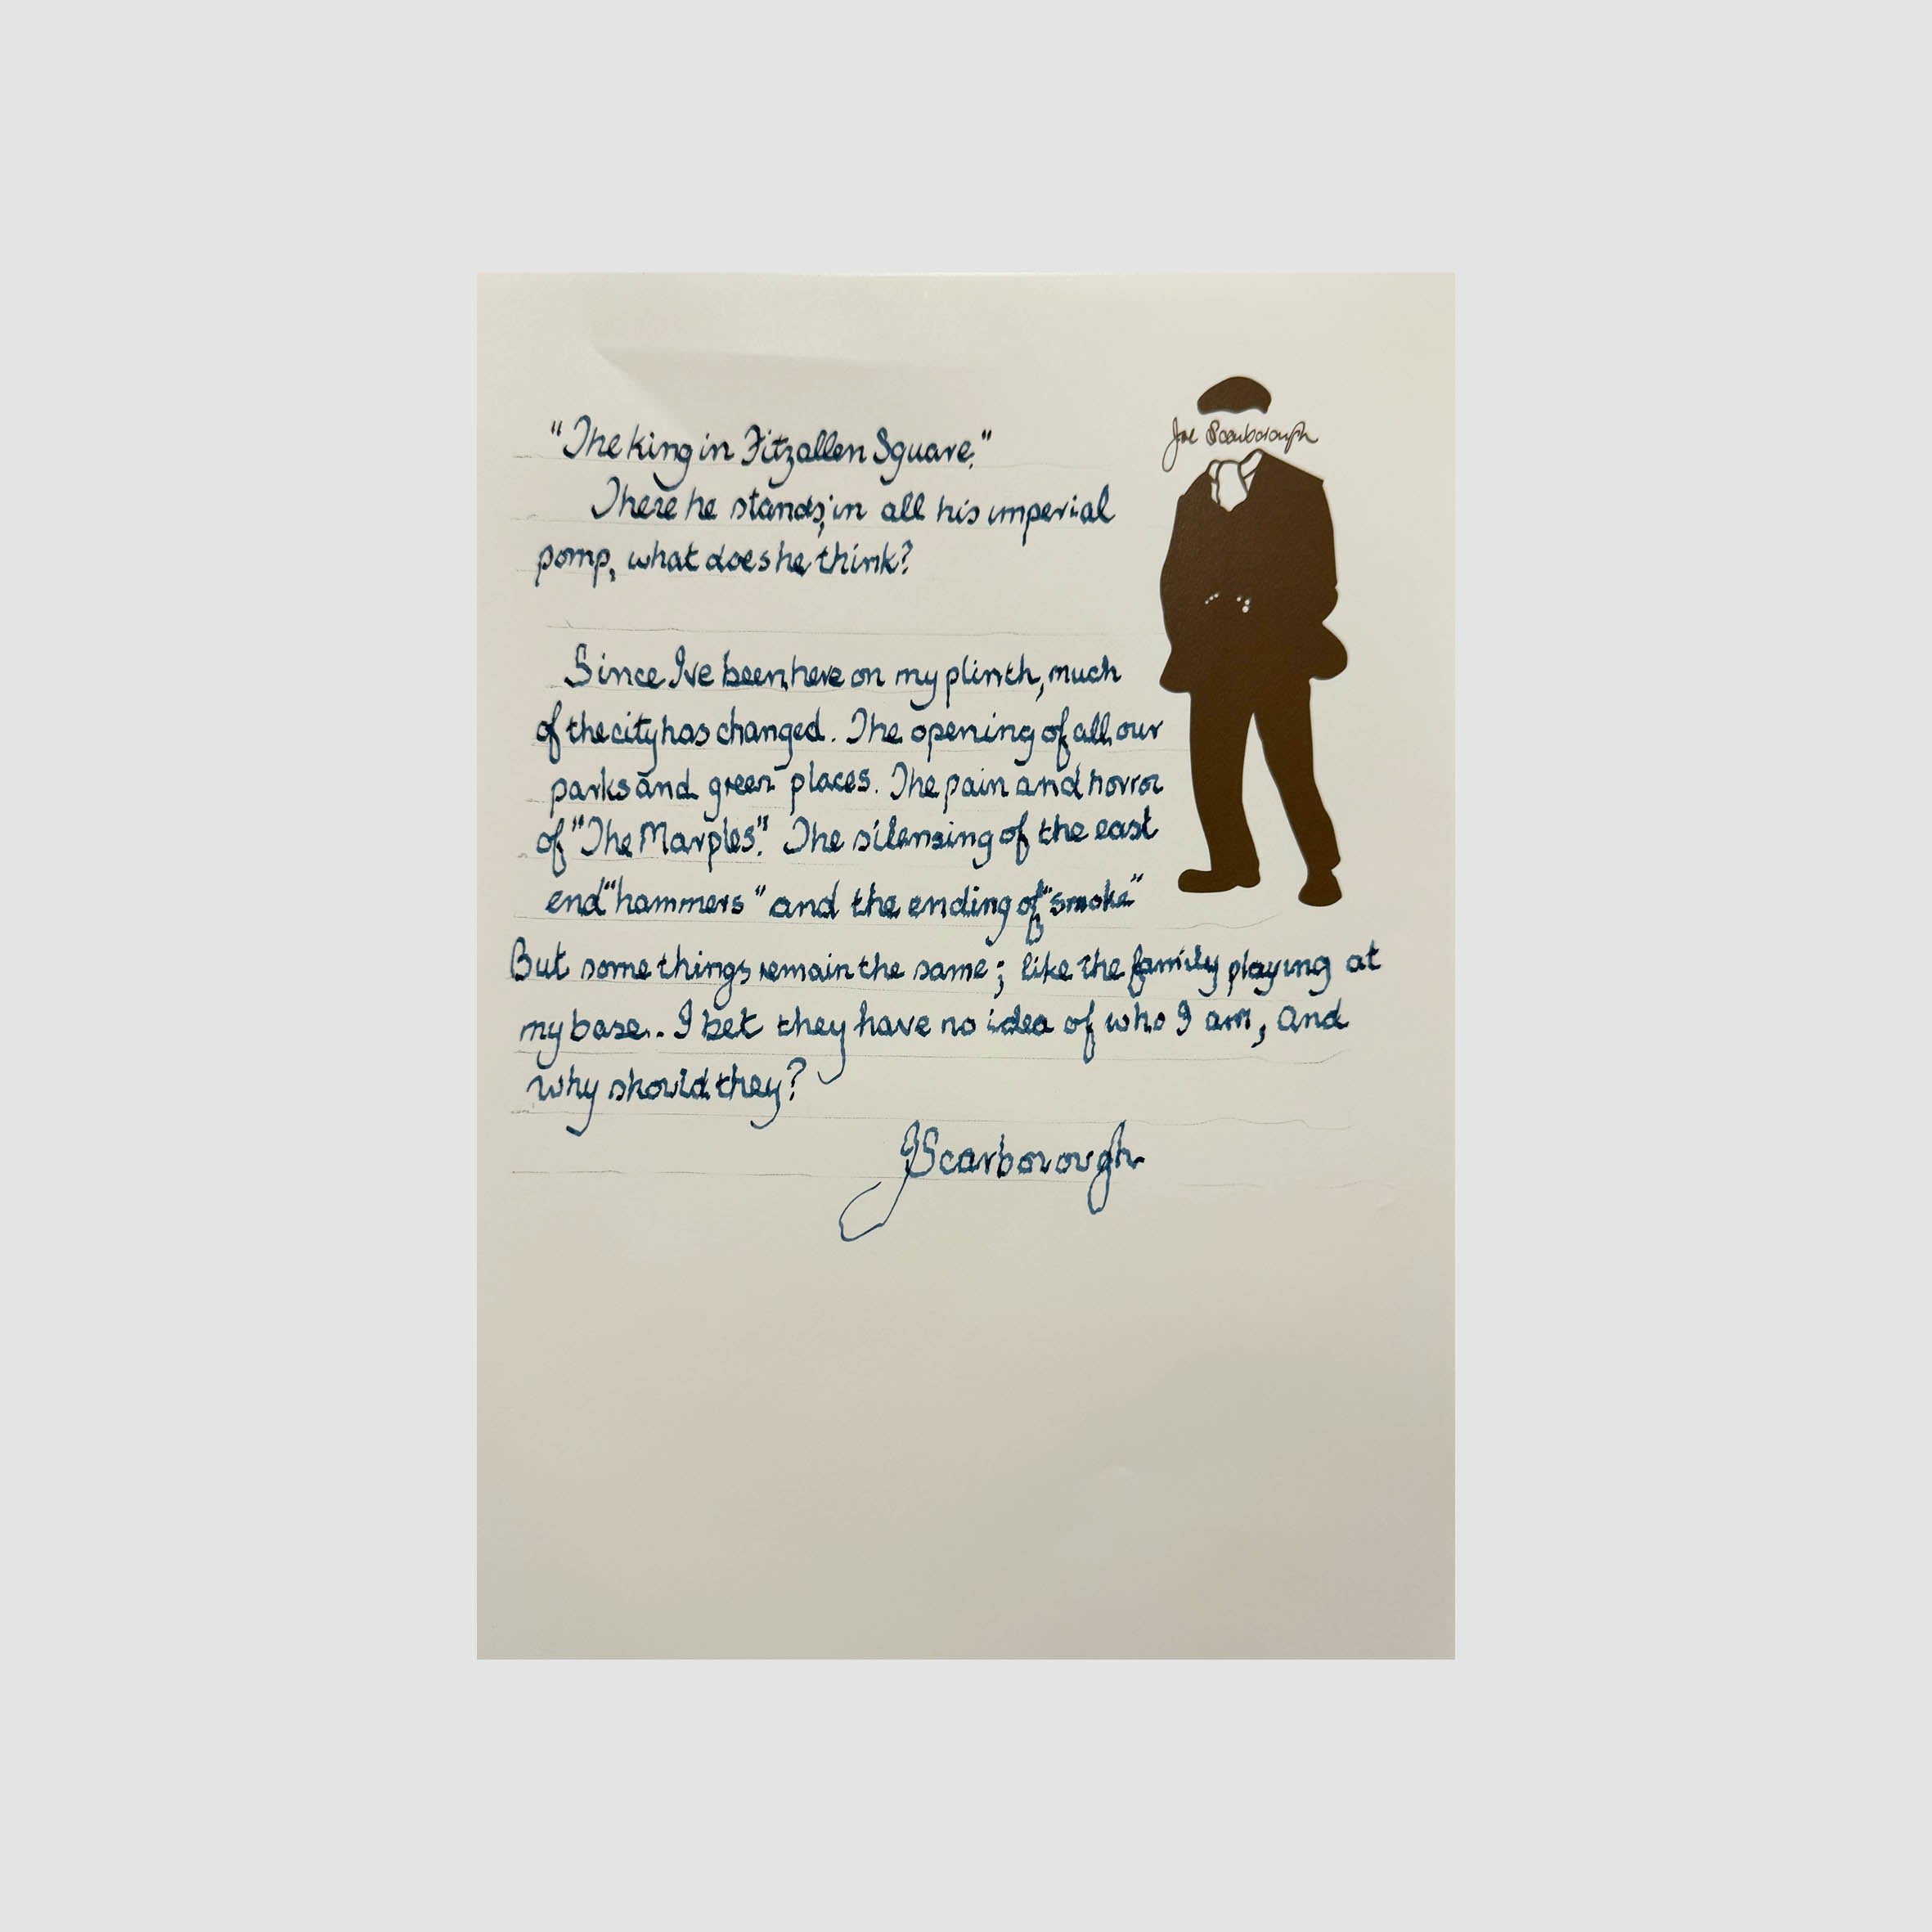 "The King in Fitzallen Square."
Joe Scarborough
There he stands, in all his imperial
pomp, what does he think?
Since I've been here on my plinth, much
of the city has changed. The opening of all our
parks and green places. The pain and horror
of "The Marples". The silensing of the east
end "hammers" and the ending of "smoke"
But some things remain the same; like the family playing at
my base.. I bet they have no idea of who I am, and
why should they?
JScarborough